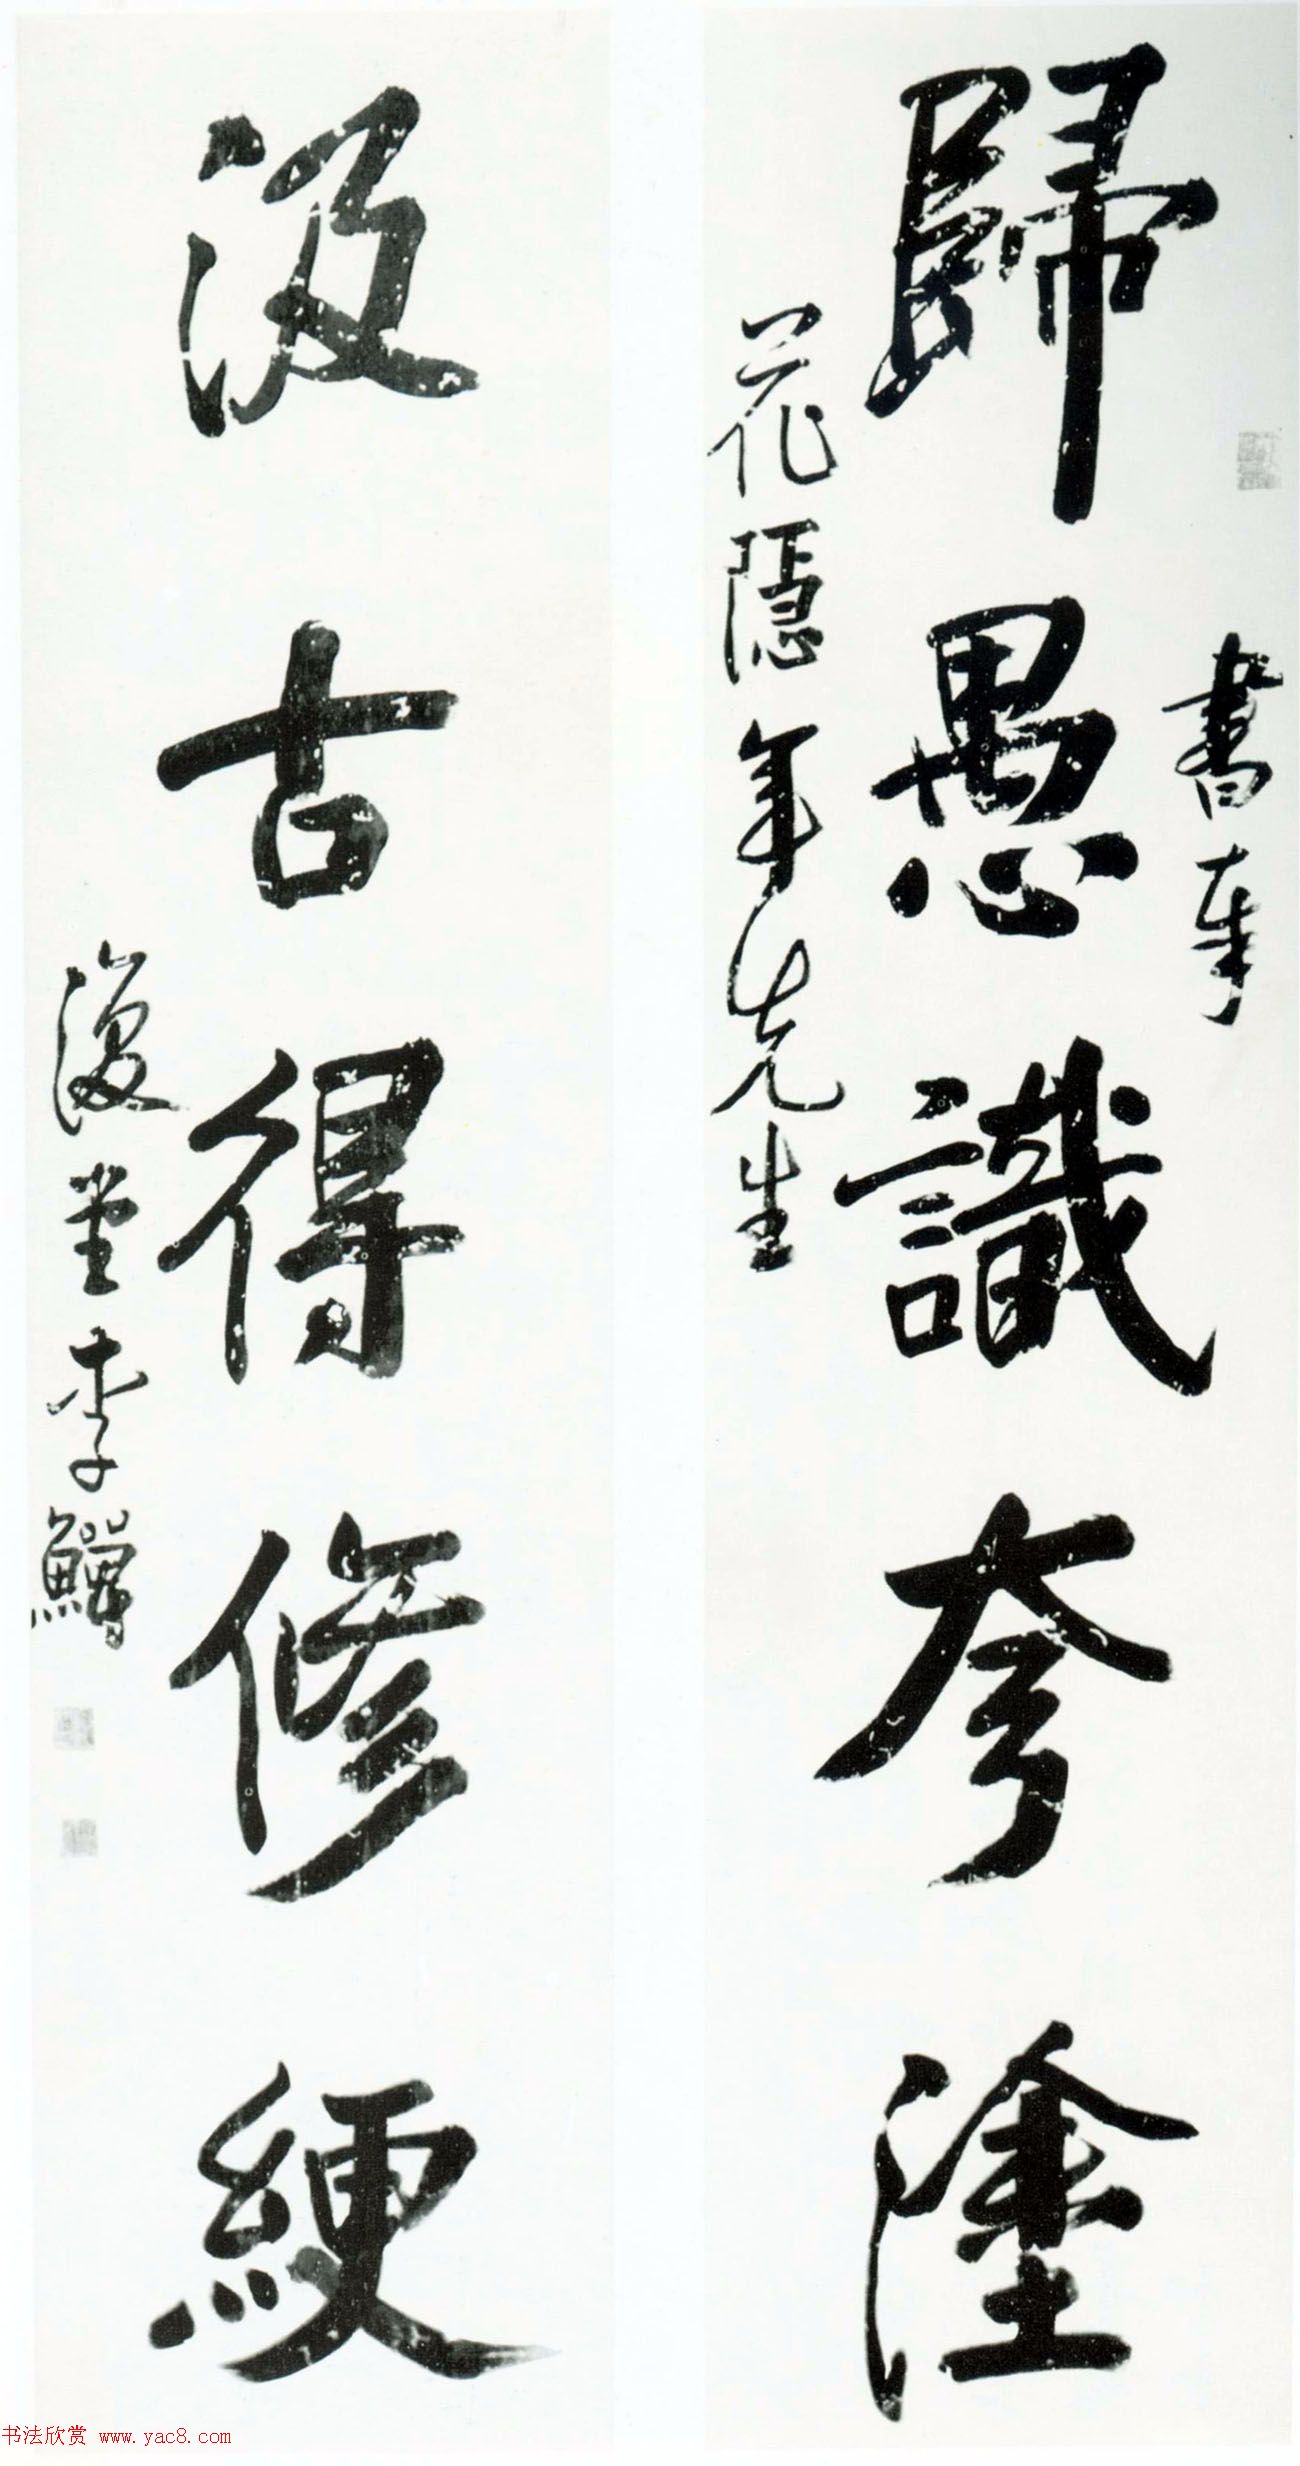 書奉
歸愚識夸塗
花隱年先生
汲古得修綆
復堂李鱓
书法欣赏 www.yac8.com